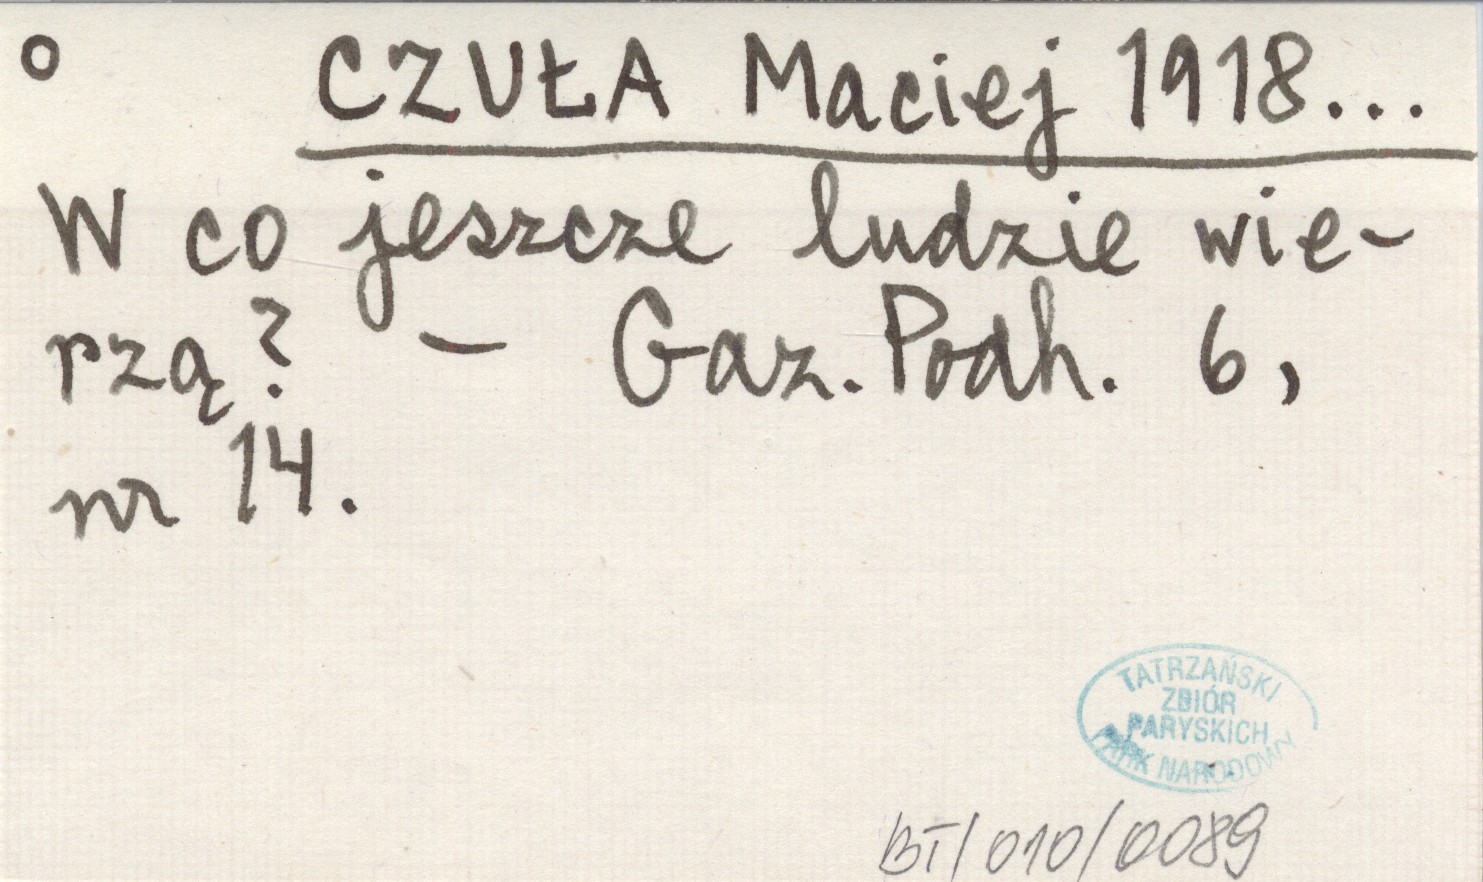 o CZUŁA Maciej 1918...
W co jeszcze ludzie wie-
rzą? — Gaz. Podh. 6,
nr 14.
TATRZAŃSKI
ZBIÓR
PARYSKICH
PARK NARODOWY
BT/010/0089